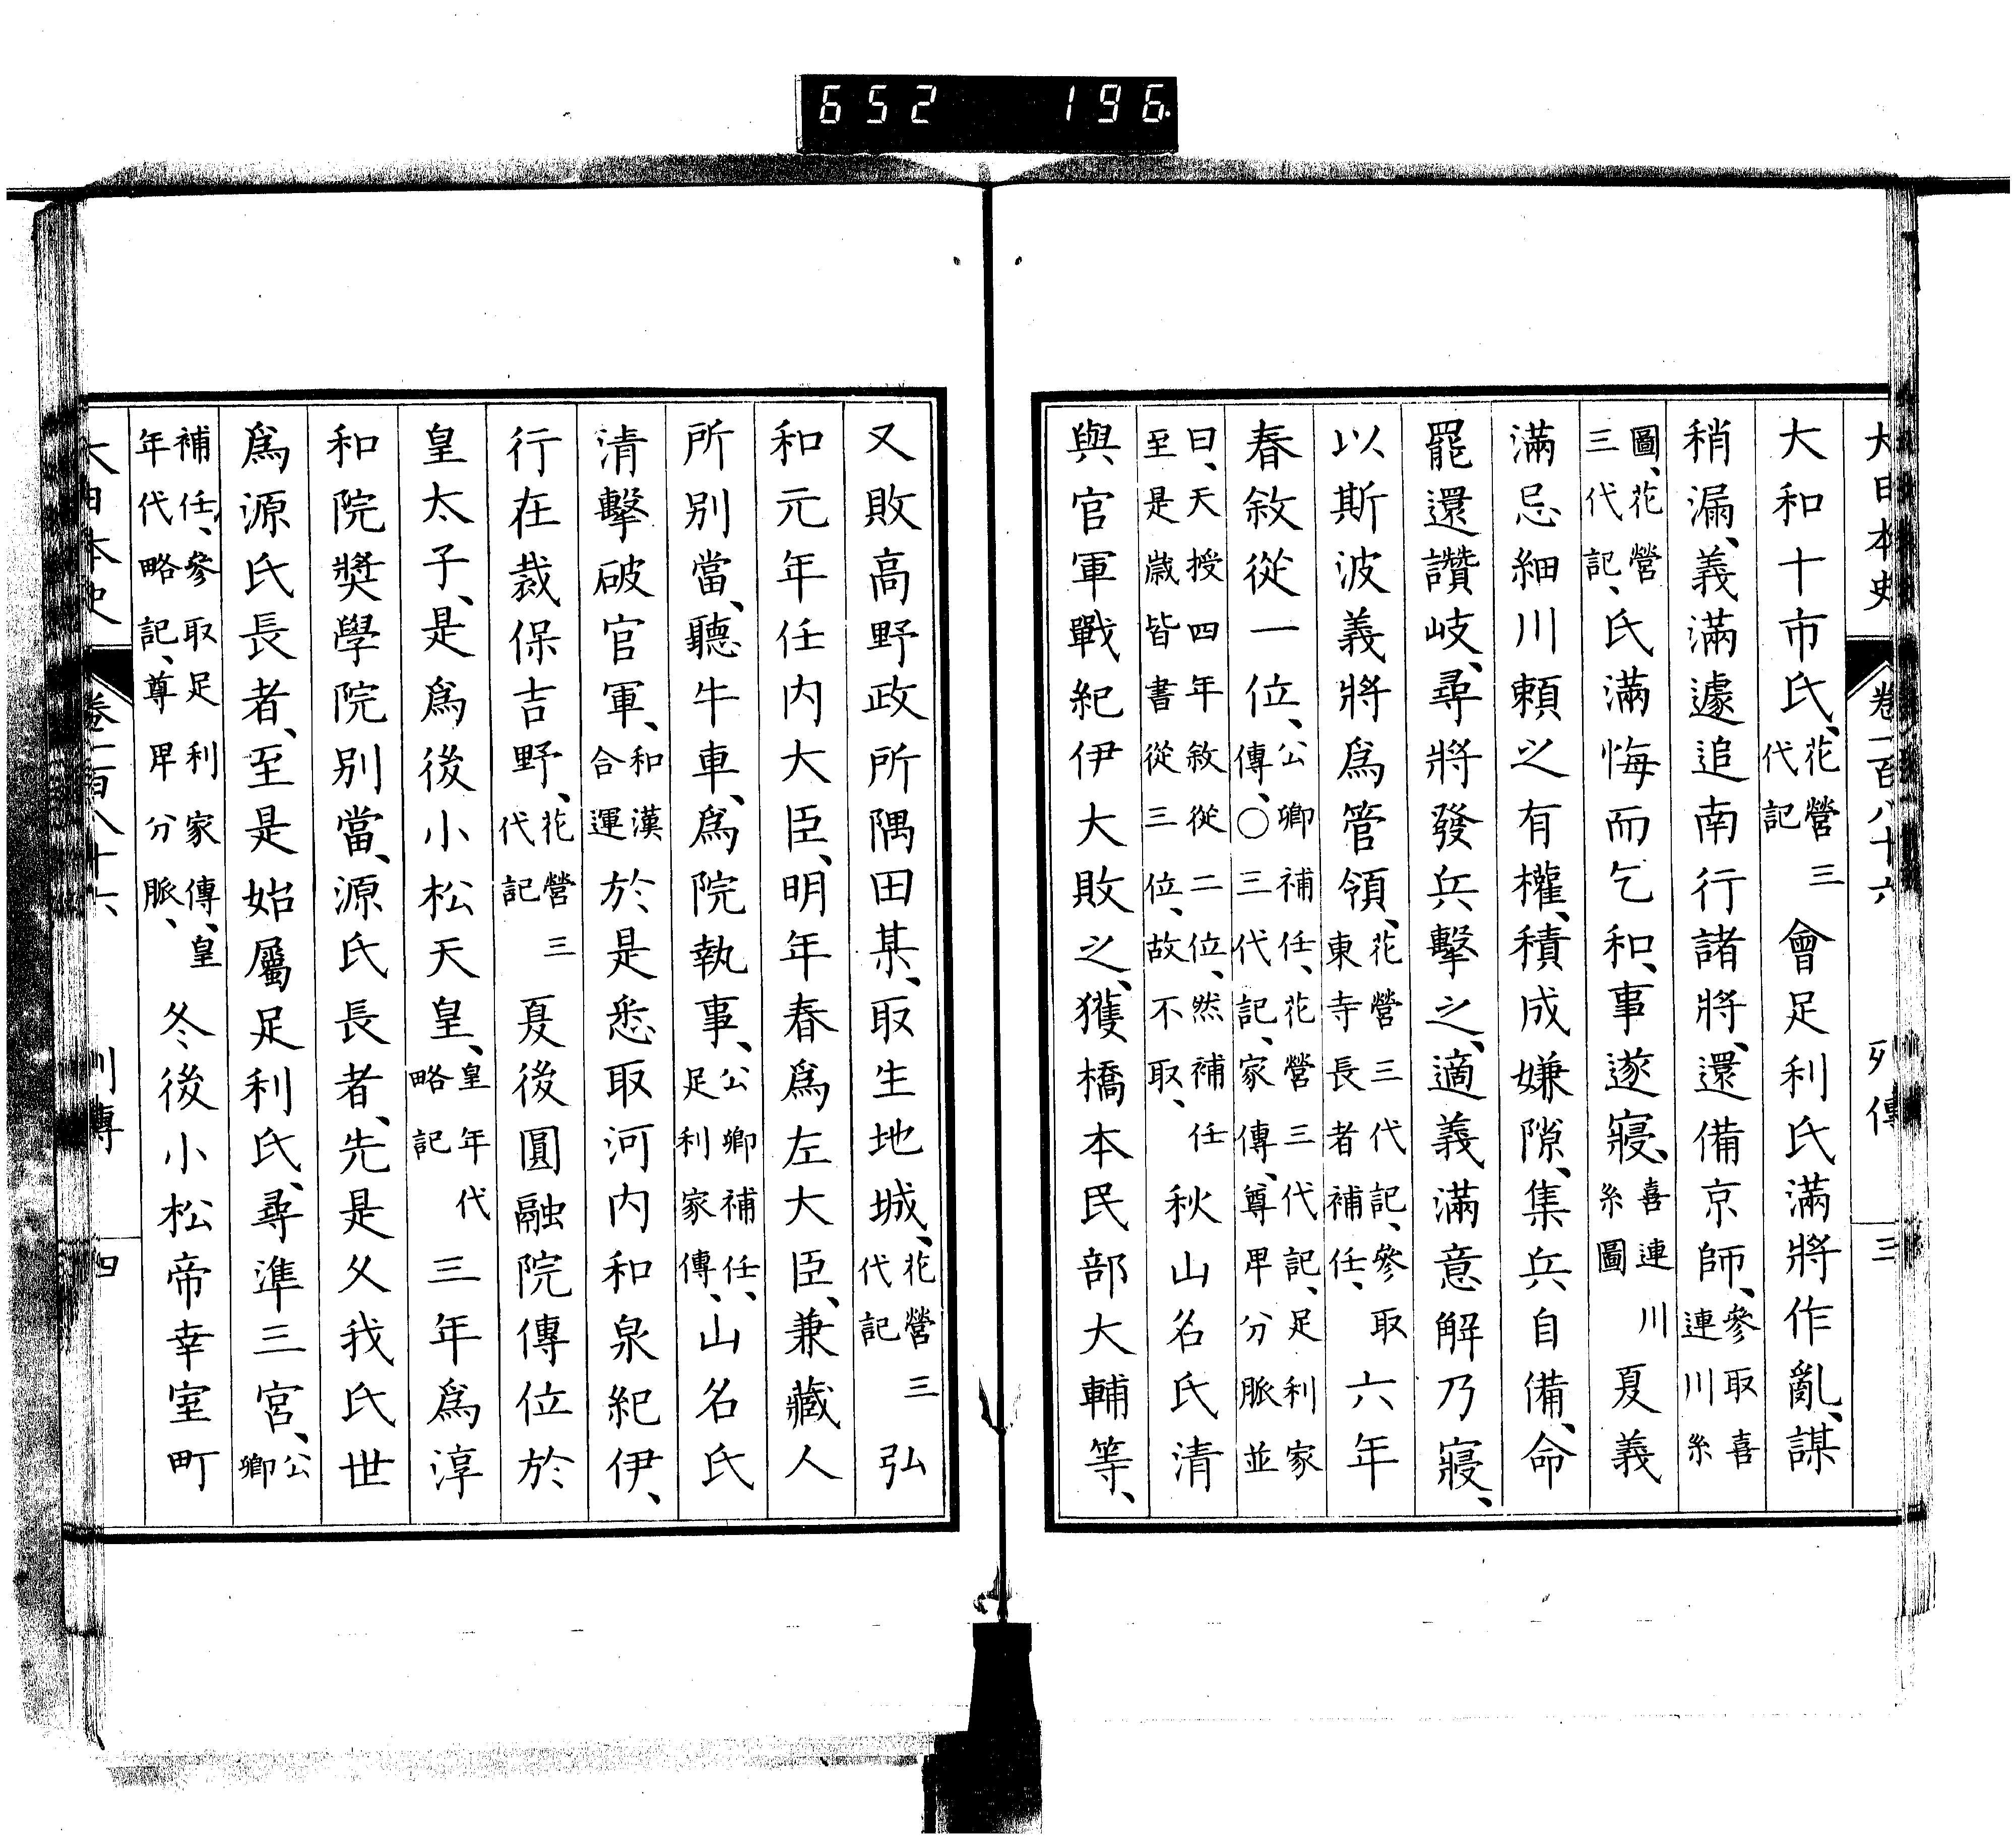 652 196
大日本史 卷一百八十六 列傳 三
大和十市氏、花營三代記會足利氏滿將作亂、謀
稍漏、義滿遽追南行諸將、還備京師、參取喜連川系
圖、花營三代記、氏滿悔而乞和、事遂寢、喜連川系圖夏義
滿忌細川頼之有權、積成嫌隙、集兵自備、命
罷還讚岐、尋將發兵擊之、適義滿意解乃寢、
以斯波義將爲管領、花營三代記、參取東寺長者補任、六年
春敘從一位、公卿補任、花營三代記、足利家傳、〇三代記、家傳、尊卑分脈並
曰、天授四年敘從二位、然補任至是歲皆書從三位、故不取、秋山名氏清
與官軍戰紀伊大敗之、獲橋本民部大輔等、
又敗高野政所隅田某、取生地城、花營三代記弘
和元年任内大臣、明年春爲左大臣、兼藏人
所別當、聽牛車、爲院執事、公卿補任、足利家傳、山名氏
清擊破官軍、和漢合運於是悉取河内和泉紀伊、
行在裁保吉野、花營三代記夏後圓融院傳位於
皇太子、是爲後小松天皇、皇年代略記三年爲淳
和院奬學院別當、源氏長者、先是久我氏世
爲源氏長者、至是始屬足利氏、尋準三宮、公卿
補任、參取足利家傳、皇年代略記、尊卑分脈、冬後小松帝幸室町
大日本史 卷一百八十六 列傳 四